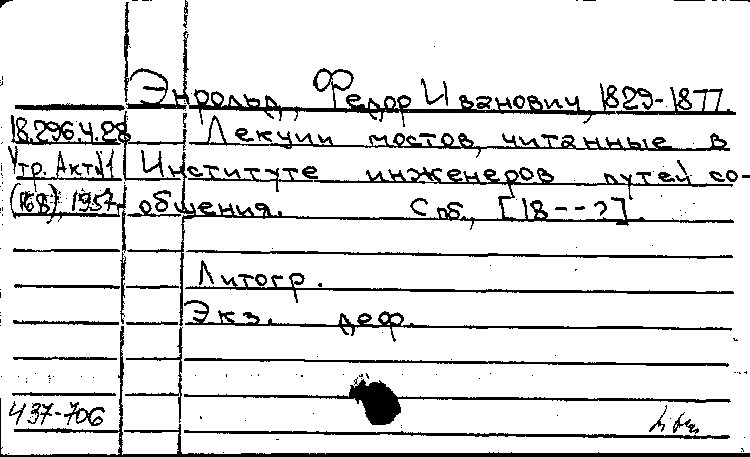 Энрольд, Федор Иванович, 1829-1877.
18.296.4.28 Лекции мостов, читанные в
Утр. Акт №1 Институте инженеров путей со-
(168), 1957 общения. Спб., [18--?].
Литогр.
Экз. деф.
437-706